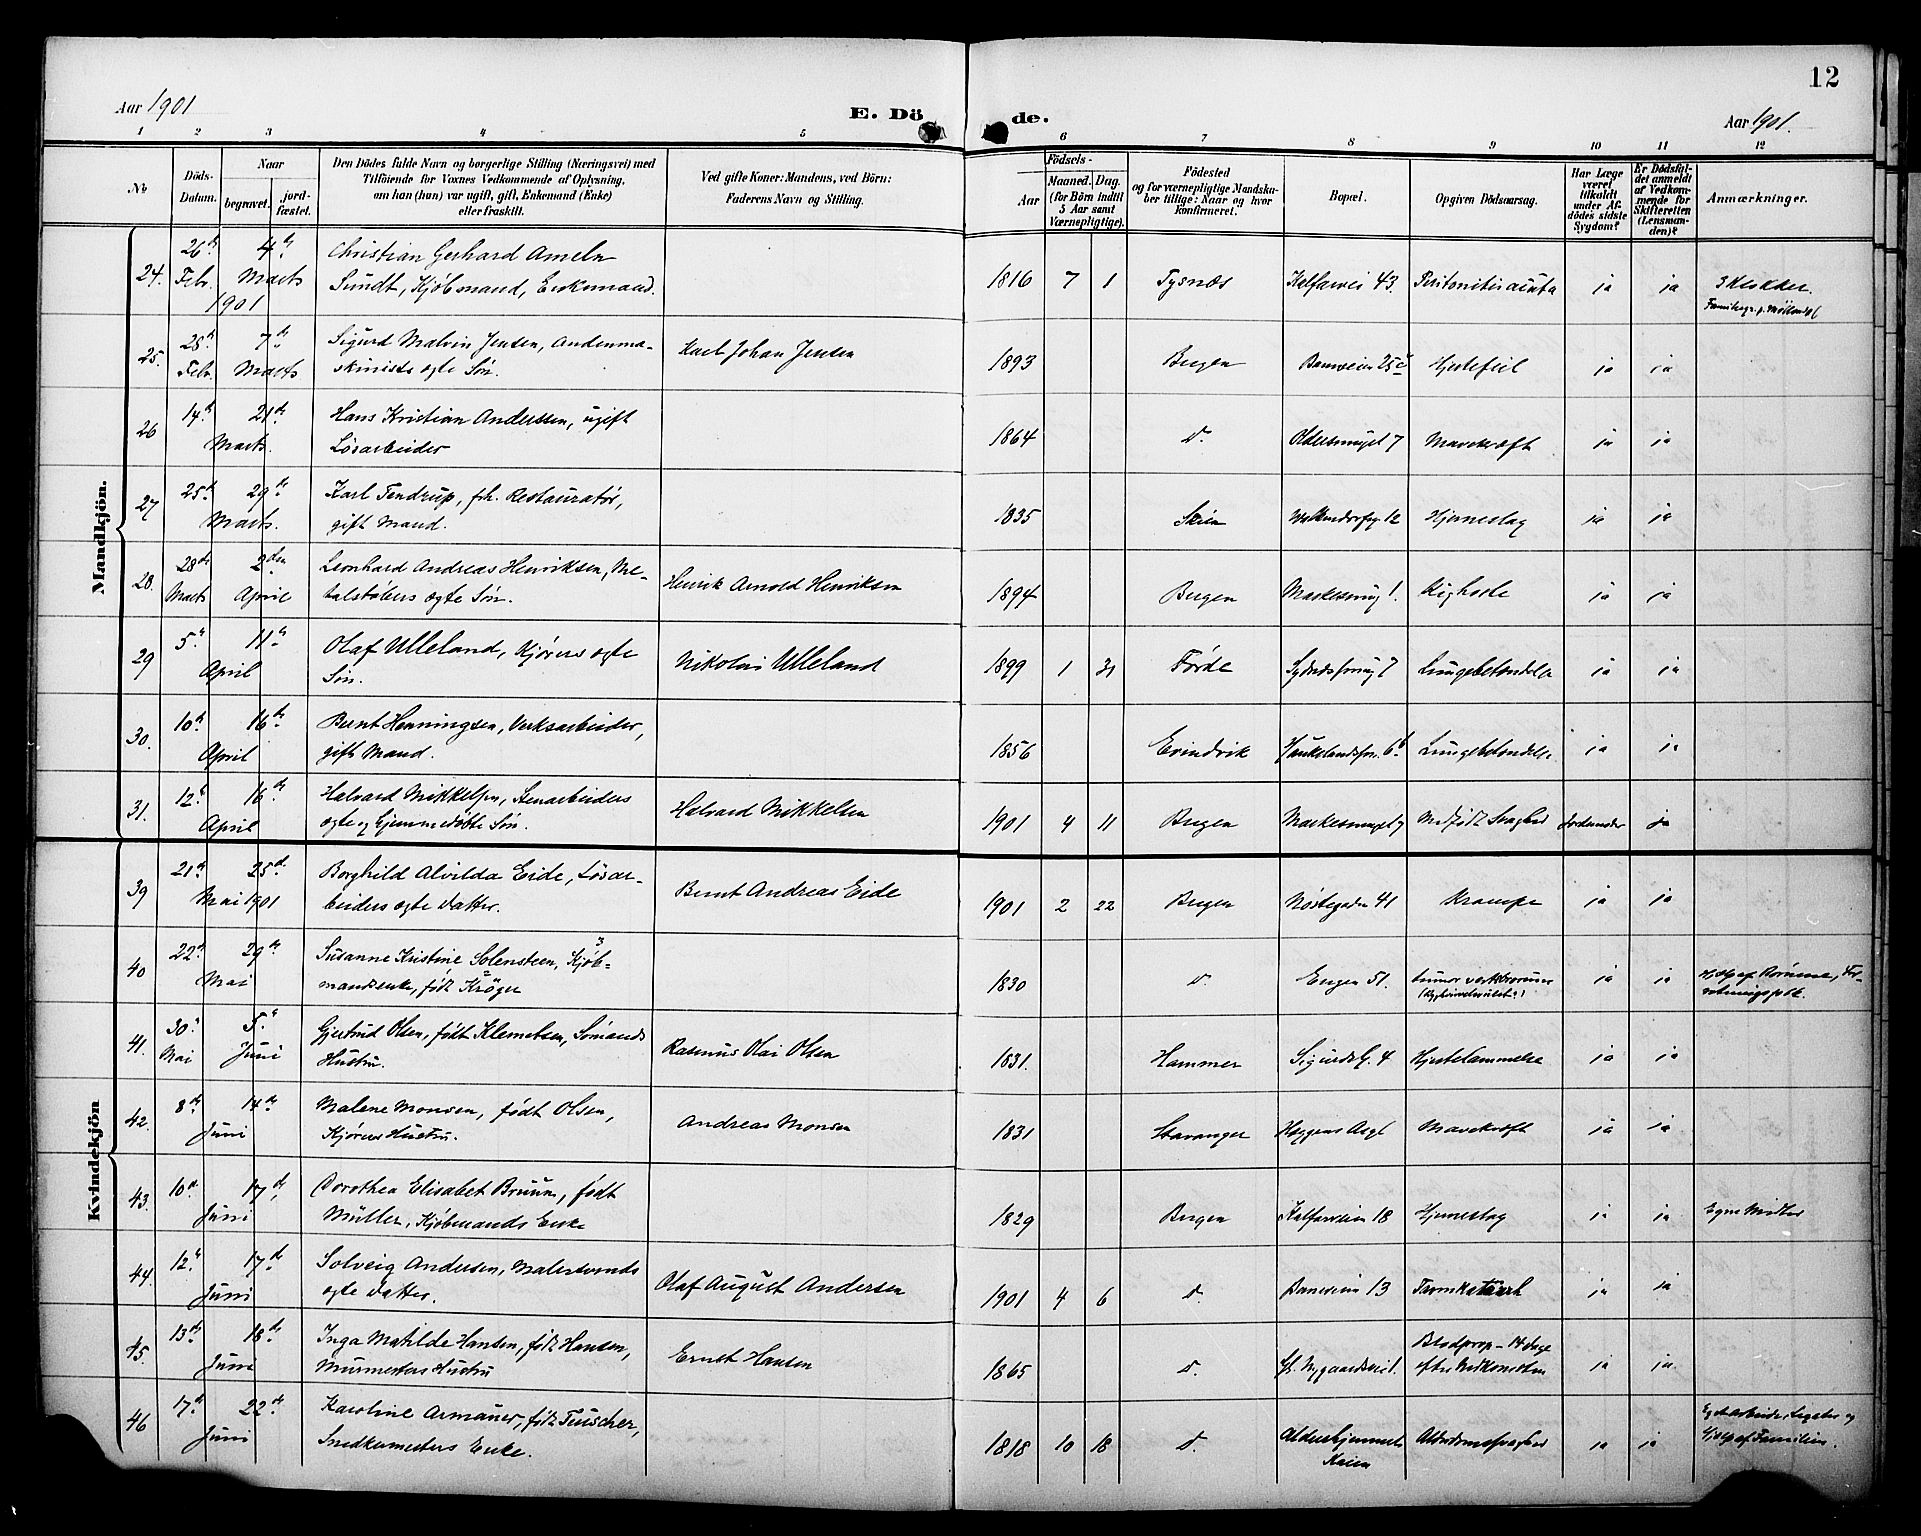 12
Aar 1901
E. Dö de.
Aar 1901.
1 2 3 4 5 6 7 8 9 10 11 12
No
Döds-Datum.
Naar
begravet.
jordfæstet.
Den Dödes fulde Navn og borgerlige Stilling (Næringsvei) med
Tilföiende for Voxnes Vedkommende af Oplysning,
om han (hun) var ugift, gift, Enkemand (Enke)
eller fraskilt.
Ved gifte Koner: Mandens, ved Börn:
Faderens Navn og Stilling.
Födsels-
Aar
Maaned. Dag.
(for Börn indtil
5 Aar samt
Værnepligtige).
Födested
og for værnepligtige Mandska-
ber tillige: Naar og hvor
konfirmeret.
Bopæl.
Opgiven Dödsaarsag.
Har Læge
været
tilkaldt
under Af-
dödes sidste
Sygdom?
Er Dödsfal-
det anmeldt
af Vedkom-
mende for
Skifteretten
(Lensman-
den)?
Anmærkninger.
Mandkjön.
24. 26de Febr. 4de Marts 1901
Christian Gerhard Ameln
Sundt, Kjøbmand, Enkemand.
1816 7 1 Tysnæs Kalfarvei 43. Peritonitis acuta ja ja 3 Klokker.
25. 28de Febr. 7de Marts
Sigurd Malvin Jensen, Andenma-
skinists ægte Søn.
Karl Johan Jensen
1893 Bergen Baneveien 25c Hjertefeil ja ja
26 14de 21de Marts.
Hans Kristian Anderssen, ugift
Løsarbeider
1864 D. Oldersmuget 7 Mavekræft ja ja
27 25de 29de Marts.
Karl Tendrup, fh. Restauratør,
gift Mand.
1835 Skien 12 Hjerneslag ja ja
28. 28de Marts 2den April
Leonhard Andreas Henriksen, Me-
talstøbers ægte Søn.
Henrik Arnold Henriksen
1894 Bergen Maskesmug 1. Kighoste ja ja
29 5te 11te April
Olaf Ulleland, Kjørers ægte
Søn.
Nikolai Ulleland
1899 1 31 Førde Sydnæssmug 7 Lungebetændelse ja ja
30. 10de 16de April
Bernt Henningsen, Verksarbeider,
gift Mand.
1856 Evindvik 6b Lungebetændelse. ja ja
31. 12te 16de April
Halvard Mikkelsen, Stenarbeiders
ægte og hjemmedøbte Søn.
Halvard Mikkelsen
1901 4 11 Bergen Maskesmuget 7 Medfødt Svaghed Jordemoder ja
Kvindekjön
39 21de 25de Mai 1901
Borghild Alvilda Eide, Løsar-
beiders ægte Datter.
Bernt Andreas Eide
1901 2 22 Bergen Nøstegaden 41 Krampe ja ja
40 22de 29de Mai
Susanne Kristine Solensteen, Kjøb-
mandsenke, født Krøger
1830 D. Engen 51. ja ja
41. 30te Mai 5te Juni
Gjertrud Olsen, født Klemetsen, Sømands
Hustru.
Rasmus Olai Olsen
1831. Hammer Sigurdsg. 4 Hjertelammelse ja ja
42. 8de 14de Juni
Malene Monsen, født Olsen,
Kjørers Hustru.
Andreas Monsen
1831 Stavanger Mavekræft ja ja
43. 10de 17de Juni
Dorothea Elisabet Bruun, født
Müller, Kjøbmands Enke
1829 Bergen Kalfarveien 18 Hjerneslag ja ja Egne Midler
44. 12te 17de Juni
Solveig Andersen, Malersvends
ægte Datter.
Olaf August Andersen
1901 4 6 D. Baneveien 13 Tarmkatarrh ja ja
45. 13de 18de Juni
Inga Matilde Hansen, født Hansen,
Murmesters Hustru
Ernst Hansen
1865 D. Blodprop – 14 dage
efter Nedkomsten ja ja
46 17de 22de Juni
Karoline Armauer, født Teuscher,
Snedkermesters Enke.
1818 10 18 D. Alderhjemmet
Kaien Alderdomssvaghed ja ja Eget Arbeide, Legater og
Hjelp af Familien.